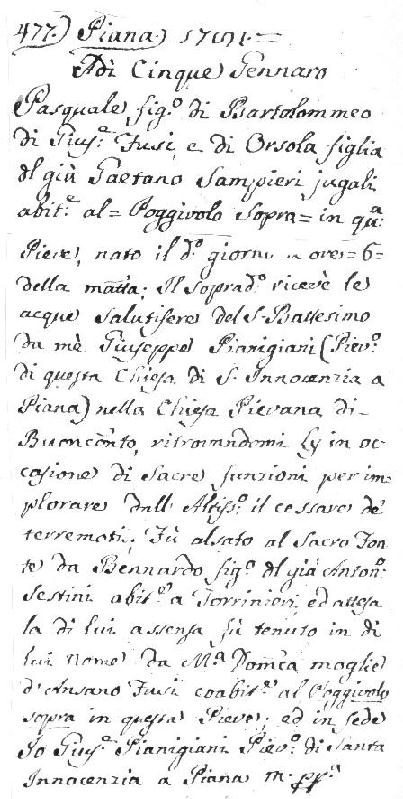 477.) Piana) 1791.=
Adì Cinque Gennaro
Pasquale figº. di Bartolommeo
di Giusª. Fusi, e di Orsola figlia
del già Gaetano Sampieri jugali
abitⁱ. al= Poggivolo Sopra= in qª.
Pieve, nato il dº. giorno a ore=6=
della mattª; Il Sopradº. ricevè le
acque salutifere del S. Battesimo
da mè Giuseppe Pianigiani (Pievº.
di questa Chiesa di S. Innocenzia a
Piana) nella Chiesa Pievana di-
Buonconto, ritrovandomi Ly in oc-
casione di Sacre funzioni per im-
plorare dall' Altissº. il cessare de'
terremoti; Fù alsato al Sacro Fon-
te da Bernardo figº. del già Antonº.
Sestini abitᵉ. a Torrinieri, ed attesa
la di lui assenza fù tenuto in di
lui nome da Mª. Domca moglie
d'Ansano Fusi coabitᵉ. al Poggivolo
sopra in questa Pieve; ed in fede
Io Giusᵉ. Pianigiani Pievº. di Santa
Innocenzia a Piana m. ppª.